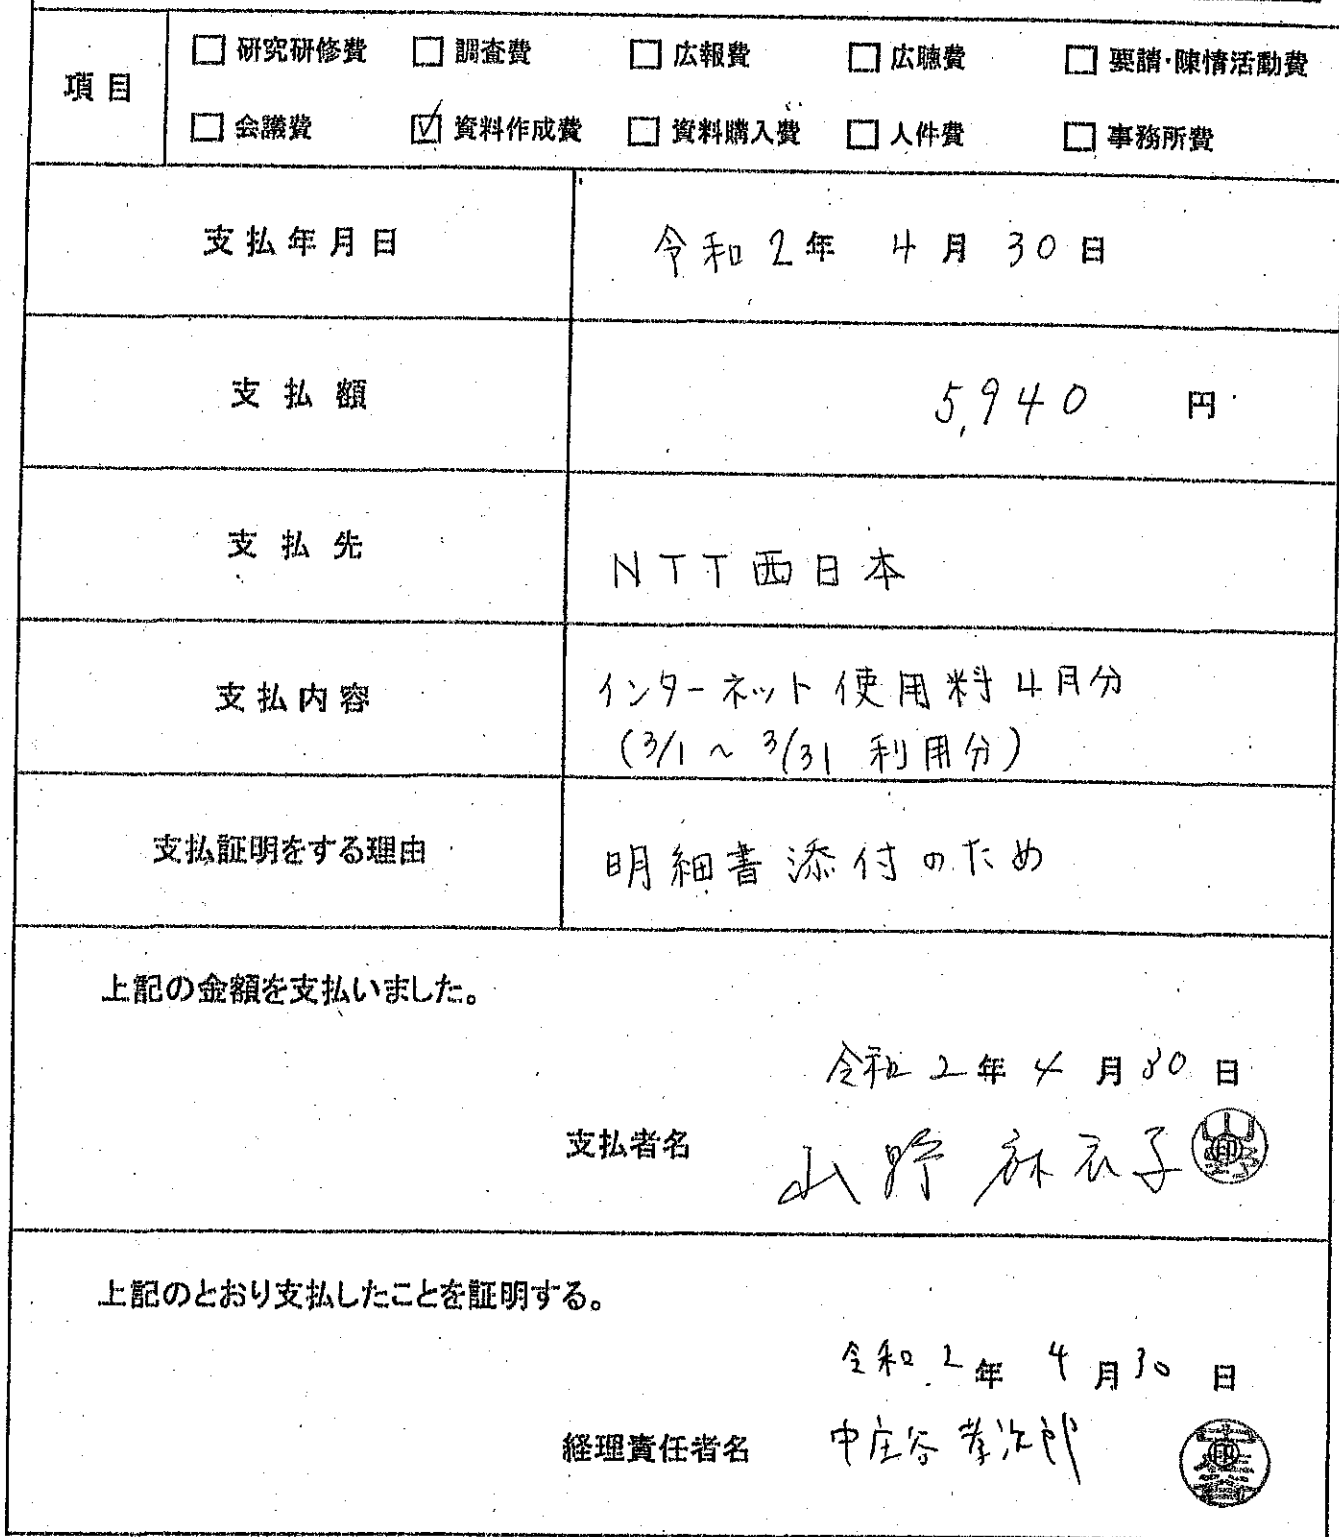 項目
□ 研究研修費 □ 調査費 □ 広報費 □ 広聴費 □ 要請・陳情活動費
□ 会議費 ☑ 資料作成費 □ 資料購入費 □ 人件費 □ 事務所費
支払年月日 令和2年 4月30日
支払額 5,940 円
支払先 NTT西日本
支払内容 インターネット使用料4月分
(3/1~3/31 利用分)
支払証明をする理由 明細書添付のため
上記の金額を支払いました。
令和2年4月30日
支払者名 山野 麻衣子 印
上記のとおり支払したことを証明する。
令和2年4月30日
経理責任者名 中庄谷 孝次郎 印